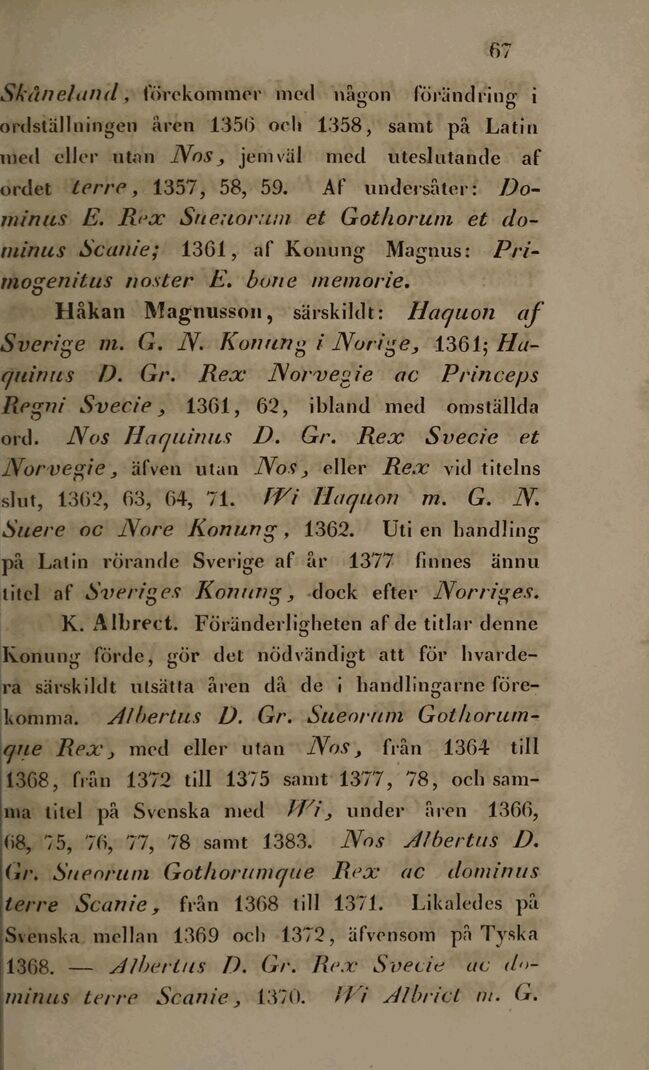 67
Skåneland, förekommer med någon förändring i
ordställningen åren 1356 och 1358, samt på Latin
med eller utan Nos, jemväl med uteslutande af
ordet terre, 1357, 58, 59. Af undersåter: Do-
minus E. Rex Sueuorum et Gothorum et do-
minus Scanie; 1361, af Konung Magnus: Pri-
mogenitus noster E. bone memorie.
Håkan Magnusson, särskildt: Haquon af
Sverige m. G. N. Konung i Norige, 1361; Ha-
quinus D. Gr. Rex Norvegie ac Princeps
Regni Svecie, 1361, 62, ibland med omställda
ord. Nos Haquinus D. Gr. Rex Svecie et
Norvegie, äfven utan Nos, eller Rex vid titelns
slut, 1362, 63, 64, 71. Wi Haquon m. G. N.
Suere oc Nore Konung, 1362. Uti en handling
på Latin rörande Sverige af år 1377 finnes ännu
titel af Sveriges Konung, dock efter Norriges.
K. Albrect. Föränderligheten af de titlar denne
Konung förde, gör det nödvändigt att för hvarde-
ra särskildt utsätta åren då de i handlingarne före-
komma. Albertus D. Gr. Sueorum Gothorum-
que Rex, med eller utan Nos, från 1364 till
1368, från 1372 till 1375 samt 1377, 78, och sam-
ma titel på Svenska med Wi, under åren 1366,
68, 75, 76, 77, 78 samt 1383. Nos Albertus D.
Gr. Sueorum Gothorumque Rex ac dominus
terre Scanie, från 1368 till 1371. Likaledes på
Svenska mellan 1369 och 1372, äfvensom på Tyska
1368. — Albertus D. Gr. Rex Svecie ac do-
minus terre Scanie, 1370. Wi Albrict m. G.